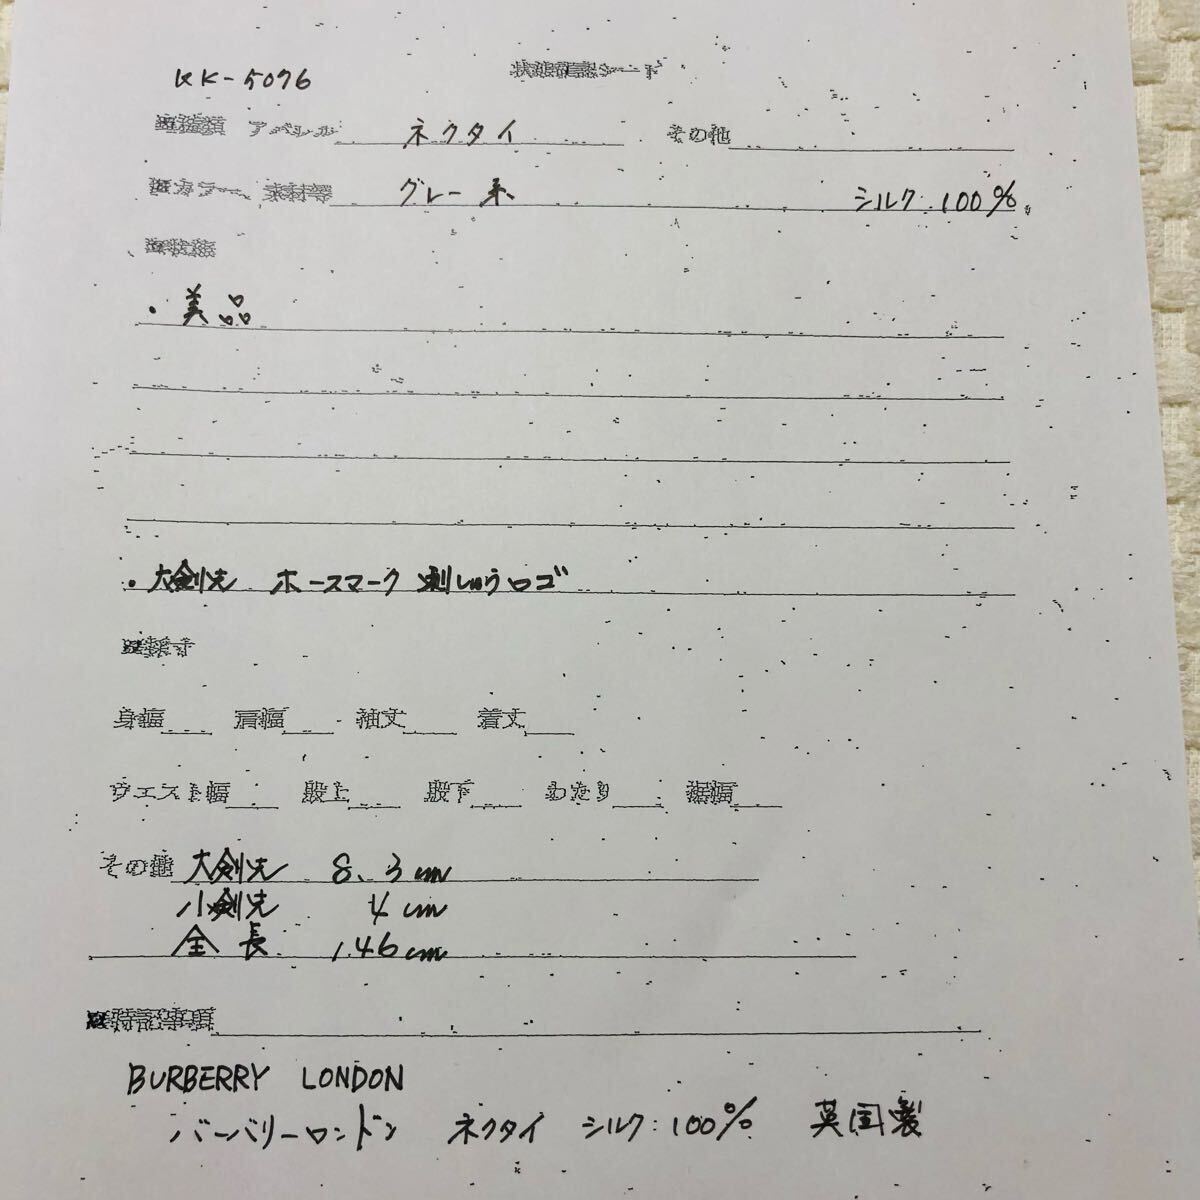 KK-5076 状態確認シート
■種類 アパレル ネクタイ その他
■カラー、素材等 グレー系 シルク:100%
■状態
・美品
・大剣先 ホースマーク 刺しゅうロゴ
■採寸
身幅 肩幅 袖丈 着丈
ウエスト幅 股上 股下 わたり 裾幅
その他 大剣先 8.3cm
小剣先 4cm
全長 146cm
■特記事項
BURBERRY LONDON
バーバリーロンドン ネクタイ シルク:100% 英国製